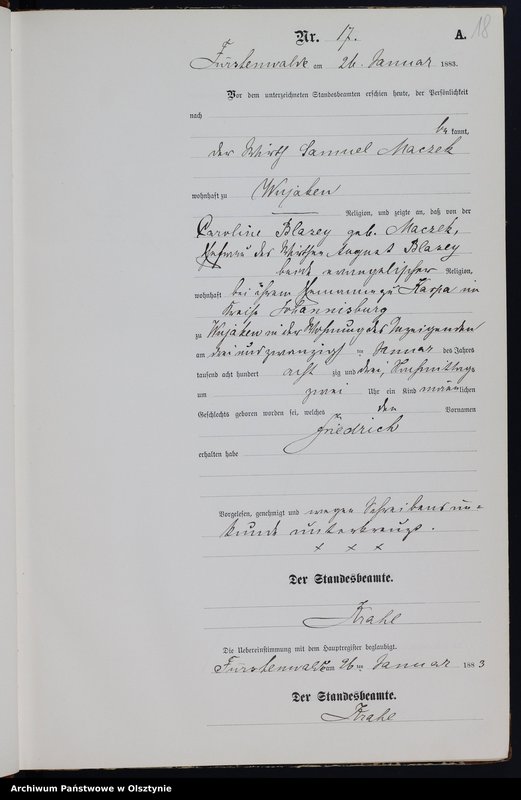 18
Nr. 17. A.
Fürstenwalde am 26. Januar 1883.
Vor dem unterzeichneten Standesbeamten erschien heute, der Persönlichkeit
nach
be kannt,
der Wirth Samuel Maczek
wohnhaft zu Wujaken
Religion, und zeigte an, daß von der
Caroline Blasey geb. Maczek,
Ehefrau des Wirthen August Blasey
beide evangelischer Religion,
wohnhaft bei ihrem Ehemanne zu Kaspa im
Kreise Johannisburg
zu Wujaken in der Wohnung des Anzeigenden
am drei und zwanzigsten Januar des Jahres
tausend acht hundert acht zig und drei, Nachmittags
um zwei Uhr ein Kind männlichen
Geschlechts geboren worden sei, welches den Vornamen
Friedrich
erhalten habe
Vorgelesen, genehmigt und wegen Schreibensun-
kunde unterkreuzt.
x x x
Der Standesbeamte.
Krahl
Die Uebereinstimmung mit dem Hauptregister beglaubigt.
Fürstenwalde am 26ten Januar 1883
Der Standesbeamte.
Krahl
Archiwum Państwowe w Olsztynie